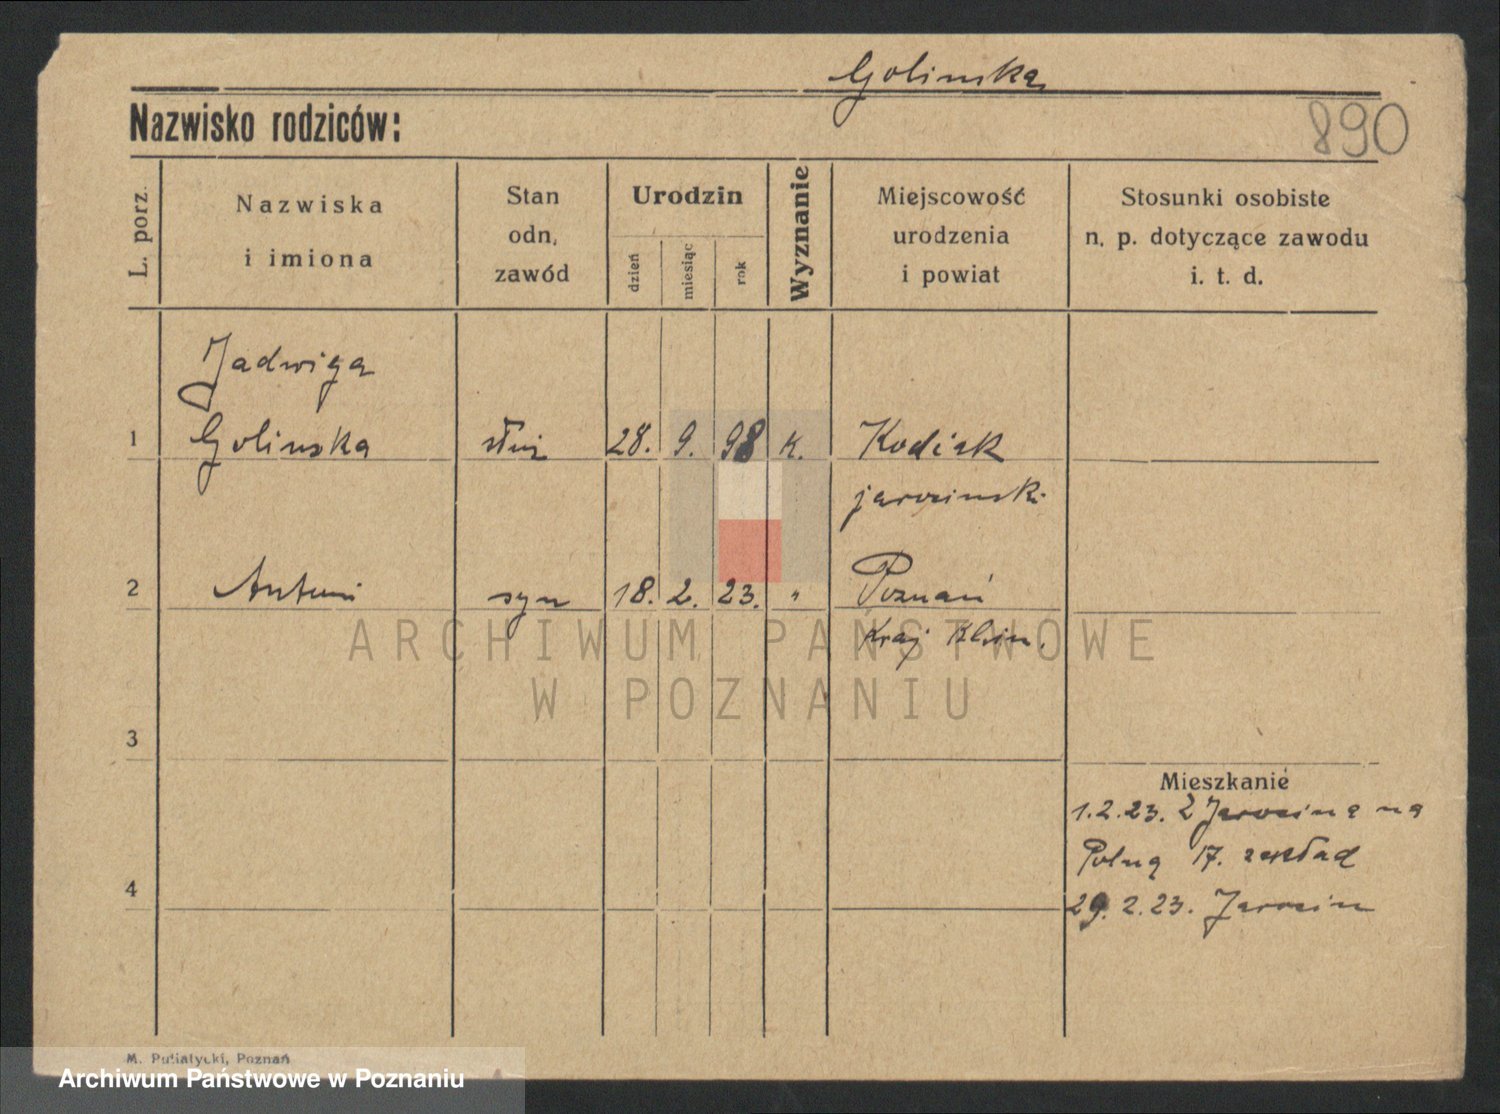 Golinska
890
Nazwisko rodziców:
L. porz.
Nazwiska
i imiona
Stan
odn.
zawód
Urodzin
dzień
miesiąc
rok
Wyznanie
Miejscowość
urodzenia
i powiat
Stosunki osobiste
n. p. dotyczące zawodu
i. t. d.
Jadwiga
1 Golinska służ 28. 9. 98 k.
jarocinski
2 Antoni syn 18. 2. 23. " Poznań
Kraj
ARCHIWUM PAŃSTWOWE
W POZNANIU
3
Mieszkanie
1.2.23. Z Jarocina na
Polną 17. zakład
4
29. 2. 23. Jarocin
M. Putiatycki, Poznań
Archiwum Państwowe w Poznaniu